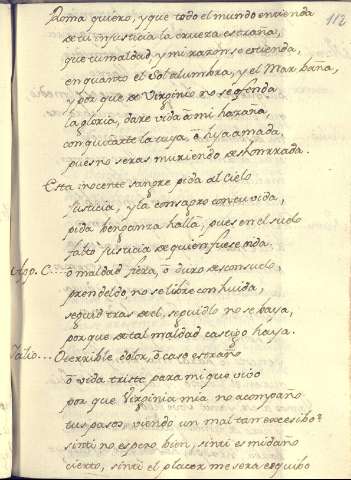 113
Roma quiero, y que todo el mundo entienda
de tu injusticia la crueza estraña,
que tu maldad y mi razon se entienda,
en quanto el Sol alumbra, y el Mar baña,
y por que de Virginio no se ofenda
la gloria, dare vida à mi hazaña,
con quitarte la tuya, ô hija amada.
pues no seras muriendo deshonrrada.
Esta inocente sangre pida al Cielo
justicia, y la consagro con tu vida,
pida benganza halla, pues en el suelo
falto justicia de quien fuese oida.
Apo. C... ô maldad fiera, ô duro desconsuelo,
prendeldo, no se libre con huida,
seguid tras del, seguidlo no se baya,
por que de tal maldad castigo haya.
Icilio... O terrible dolor, ô caso estraño
ô vida triste para mi que vivo
por que Virginia mia no acompaño
tus pasos, viendo un mal tan excesibo?
sinti no espero bien, sinti es mi daño
cierto, sinti el placer me sera esquibo